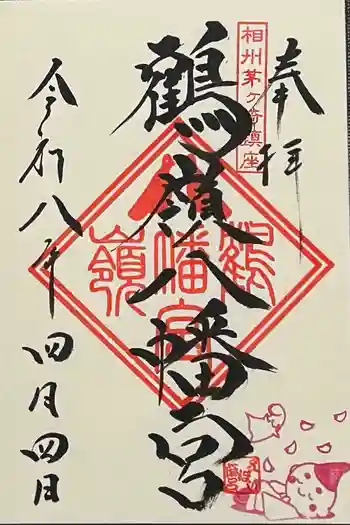 奉拝
相州茅ヶ崎鎮座
鶴嶺八幡宮
鶴嶺八幡宮
令和八年四月四日